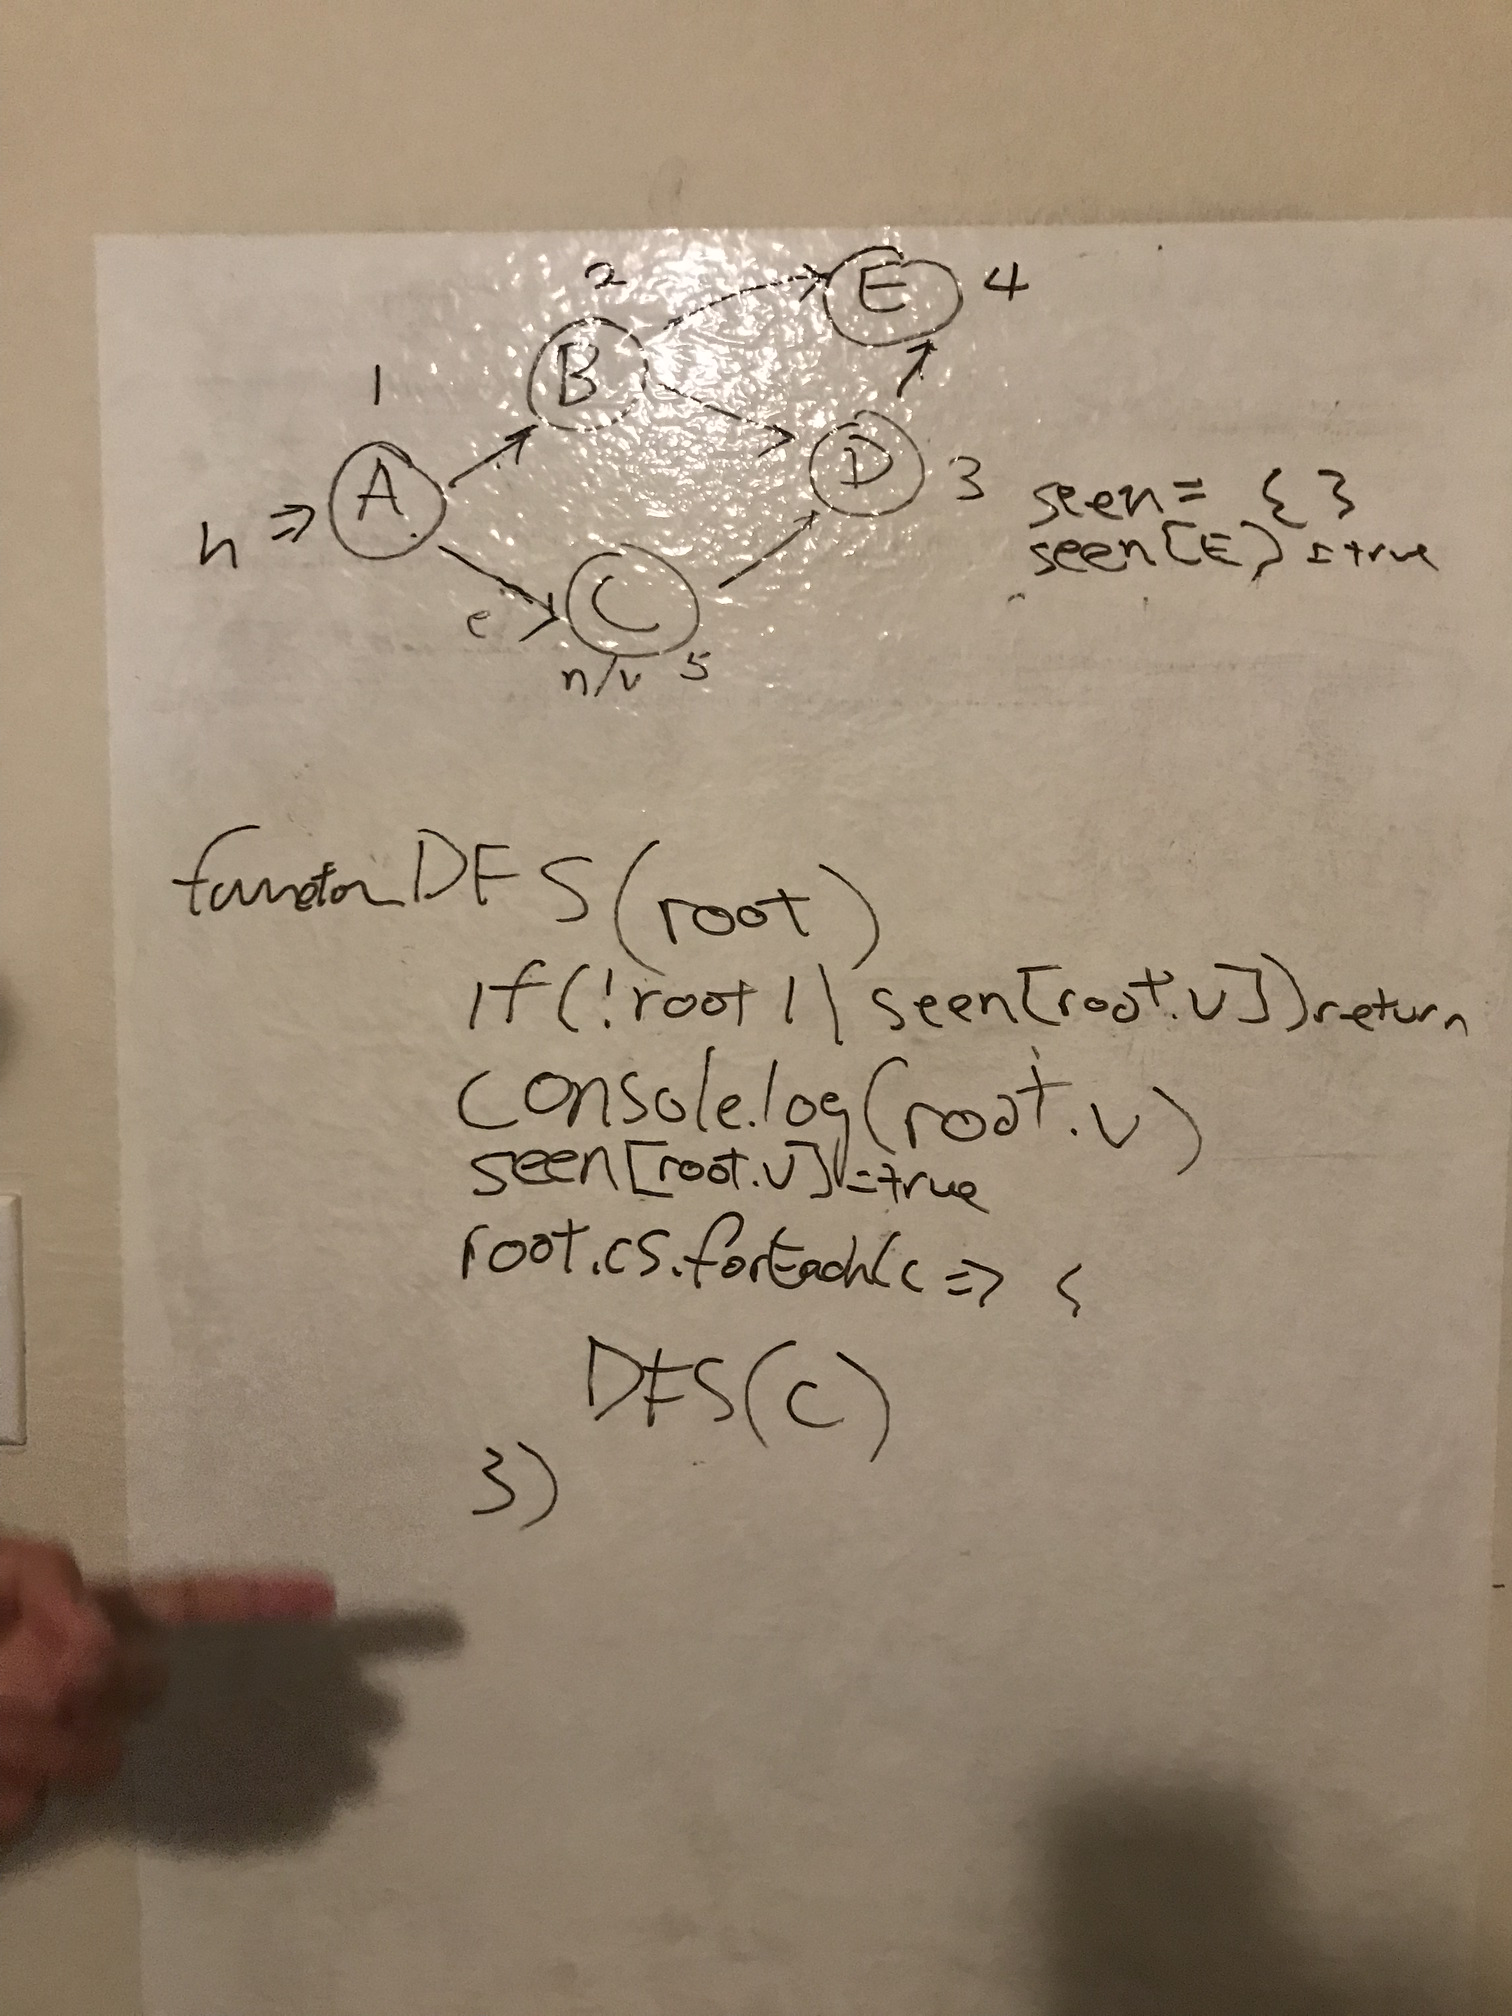 2
E 4
1
B
A
D 3
h ⇒
seen = { }
seen[E] = true
e
C
n/v 5
function DFS(root)
if(!root || seen[root.v])return
console.log(root.v)
seen[root.v]=true
root.cs.forEach(c => {
DFS(c)
})